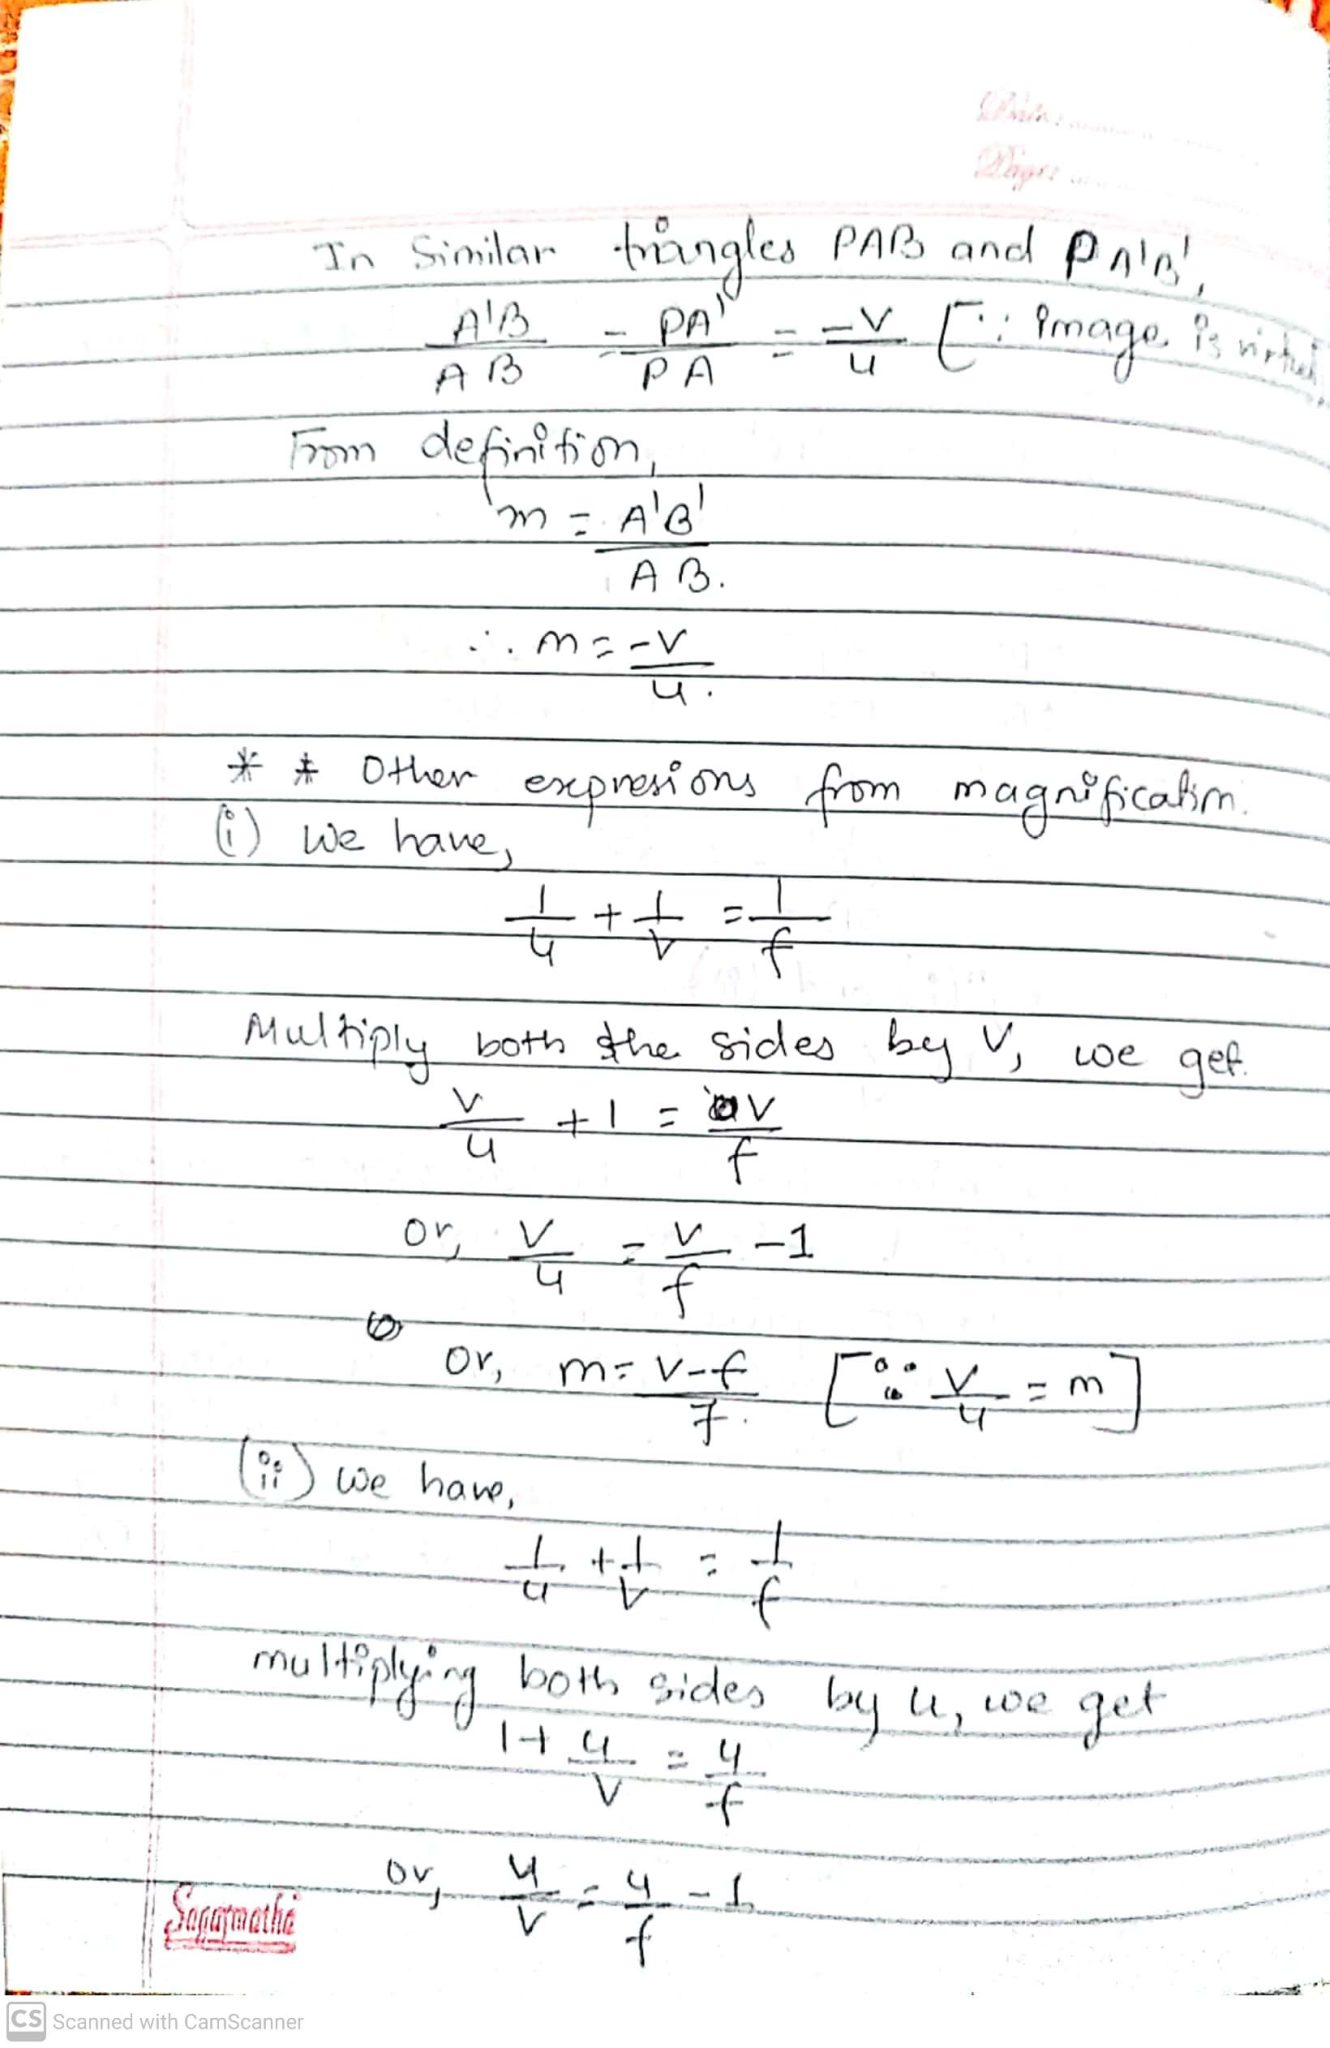 Date:
Page:
In Similar triangles PAB and PA'B',
A'B/AB = PA'/PA = -v/u [∵ image is virtual
From definition,
m = A'B'/AB.
∴ m = -v/u.
* * Other expresions from magnification.
(i) We have,
1/u + 1/v = 1/f
Multiply both the sides by v, we get.
v/u + 1 = v/f
or, v/u = v/f - 1
or, m = v-f/f. [∵ v/u = m]
(ii) we have,
1/u + 1/v = 1/f
multiplying both sides by u, we get
1 + u/v = u/f
or, u/v = u/f - 1
Sagarmatha
CS Scanned with CamScanner